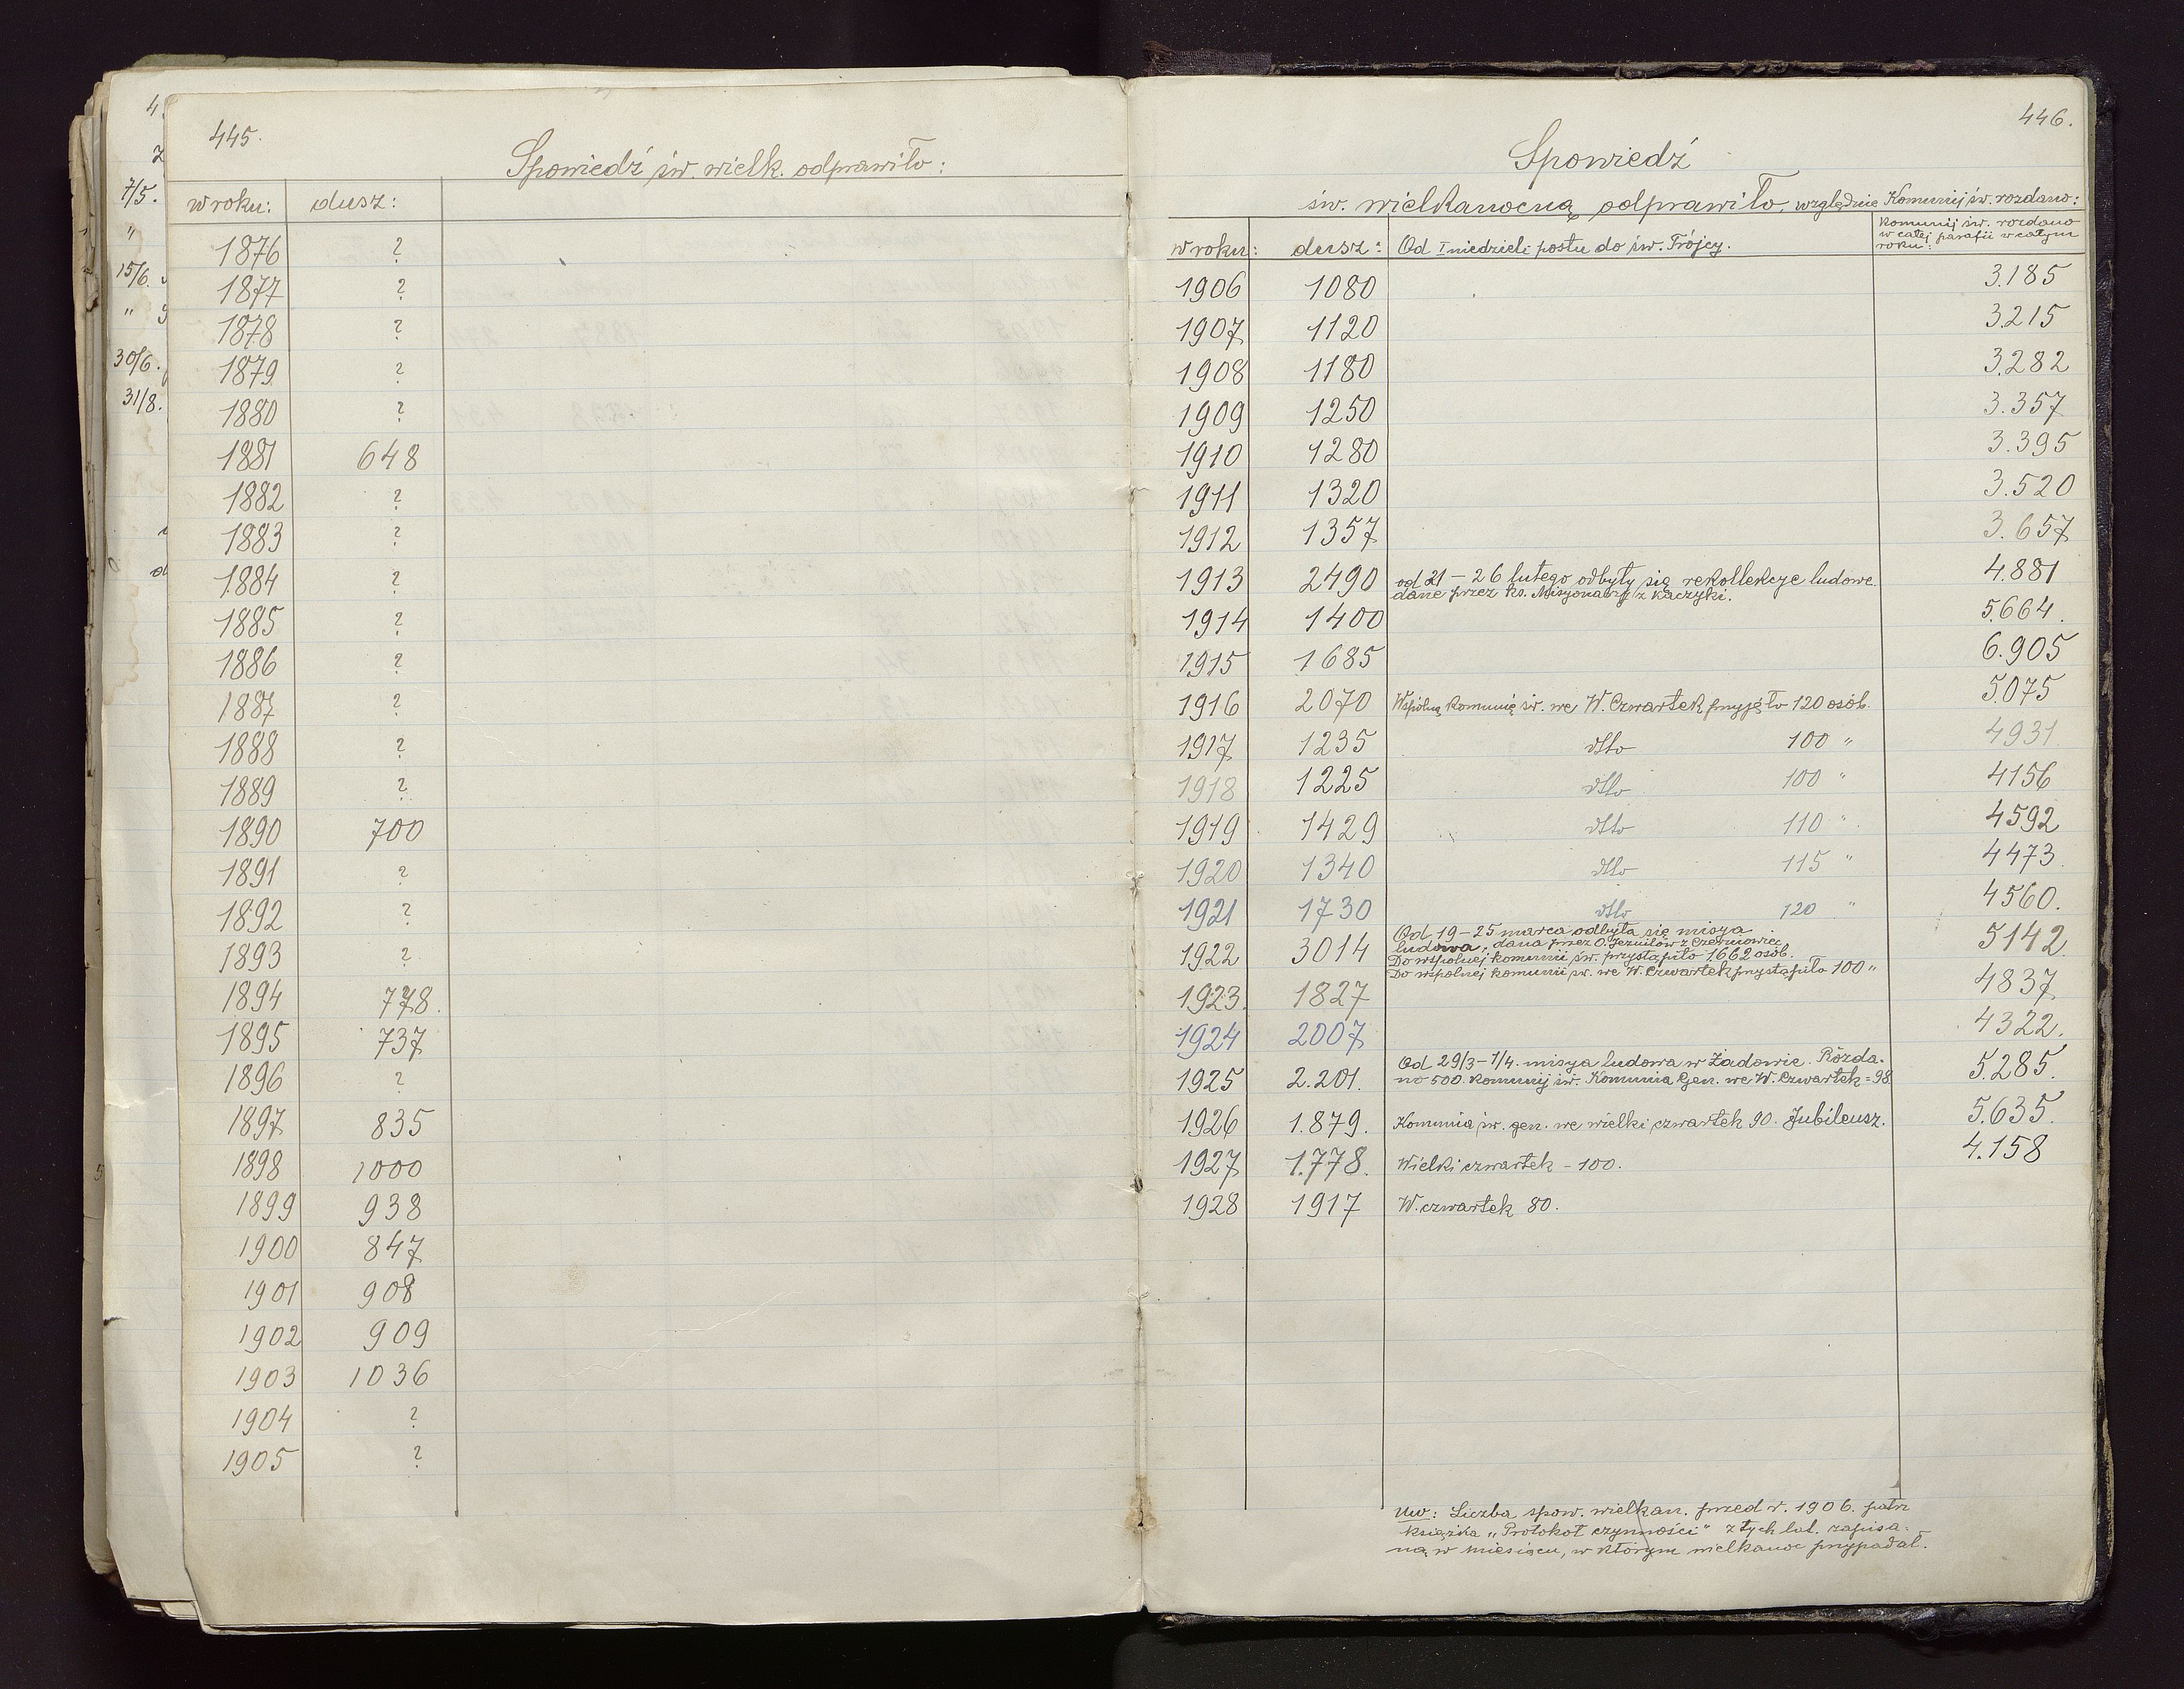 4
7/5.
"
15/6.
"
30/6.
31/8.
445.
Spowiedź św. wielk. odprawiło:
w roku: dusz:
1876 ?
1877 ?
1878 ?
1879 ?
1880 ?
1881 648
1882 ?
1883 ?
1884 ?
1885 ?
1886 ?
1887 ?
1888 ?
1889 ?
1890 700
1891 ?
1892 ?
1893 ?
1894 778.
1895 737
1896 ?
1897 835
1898 1000
1899 938
1900 847
1901 908
1902 909
1903 1036
1904 ?
1905 ?
446.
Spowiedź
św. wielkanocną odprawiło, względnie Komunij św. rozdano:
w roku: dusz: Od I niedzieli postu do św. Trójcy.
Komunij św. rozdano
w całej parafii w całym
roku:
1906 1080 3.185
1907 1120 3.215
1908 1180 3.282
1909 1250 3.357
1910 1280 3.395
1911 1320 3.520
1912 1357 3.657
1913 2490 od 21 – 26 lutego odbyły się rekollekcye ludowe 4.881
dane przez ks. Misyonarzy z Kaczyki.
1914 1400 5.664.
1915 1685 6.905
1916 2070 Wspólną Komunię św. we W. Czwartek przyjęło 120 osób. 5.075
1917 1235 dtto 100 " 4931
1918 1225 dtto 100 " 4156
1919 1429 dtto 110 " 4592
1920 1340 dtto 115 " 4473.
1921 1730 dtto 120 " 4560.
Od 19 – 25 marca odbyła się misya
ludowa, dana przez O. Jezuitów z Czerniowiec
1922 3014 Do wspólnej komunii św. przystąpiło 1.662 osób. 5142
Do wspólnej komunii św. we W. Czwartek przystąpiło 100 "
1923. 1827 4837
1924 2007 4322.
Od 29/3 – 7/4. misya ludowa w Żadowie. Rozda-
1925 2.201. no 500. komunij św. Komunia Gen. we W. Czwartek = 98 5.285.
1926 1.879. Komunia św. gen. we wielki czwartek 90. Jubileusz. 5.635.
1927 1.778. Wielki czwartek – 100. 4.158
1928 1917 W. czwartek 80.
Uw: Liczba spow. wielkan. przed r. 1906. patrz
książka „Protokoł czynności" z tych lat. zapisa-
na w miesiącu, w którym wielkanoc przypadał.